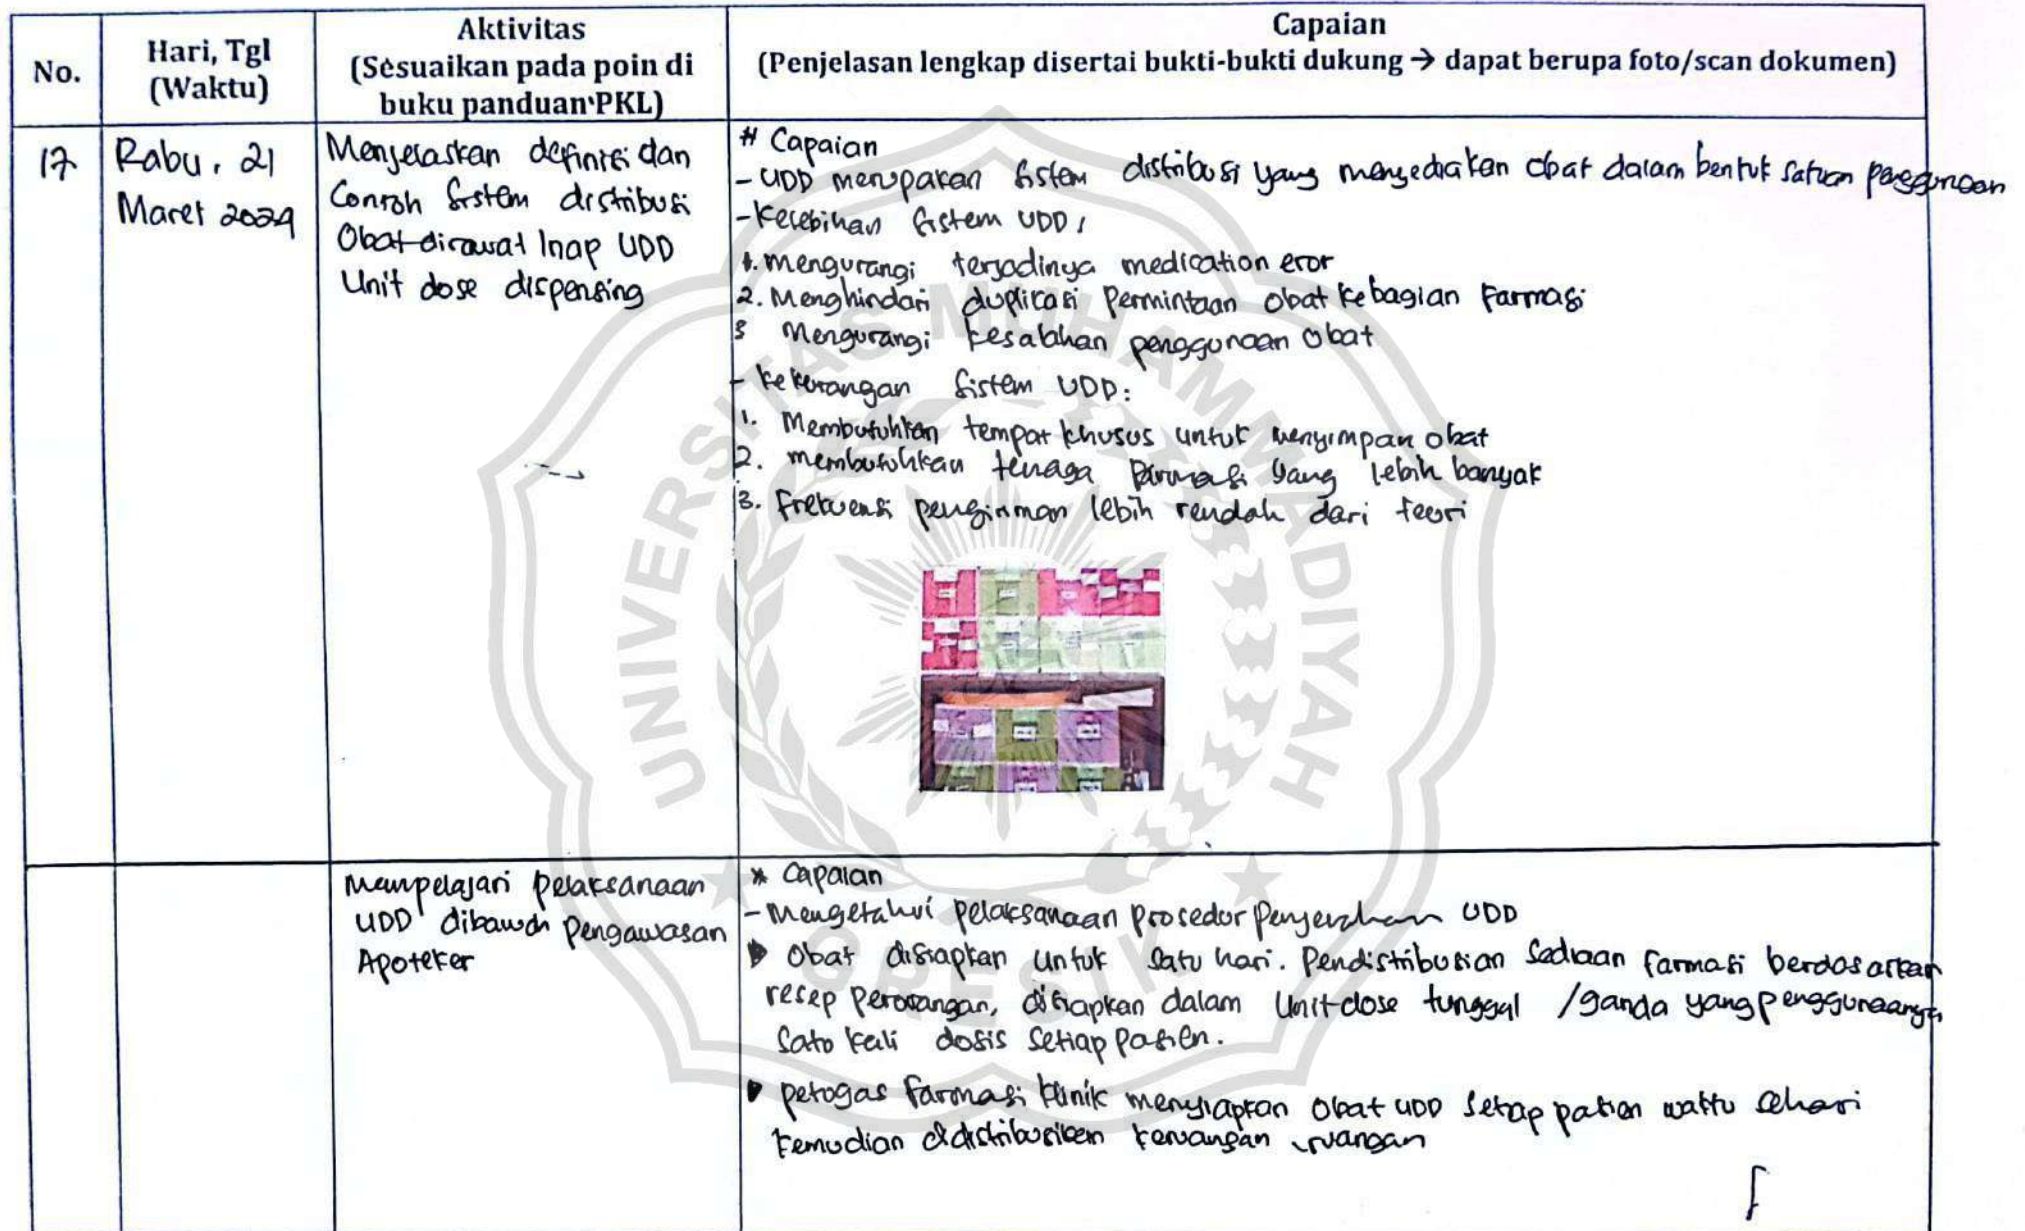 No.
Hari, Tgl
(Waktu)
Aktivitas
(Sesuaikan pada poin di
buku panduan PKL)
Capaian
(Penjelasan lengkap disertai bukti-bukti dukung → dapat berupa foto/scan dokumen)
17
Rabu, 21
Maret 2024
Menjelaskan definisi dan
Contoh Sistem distribusi
Obat dirawat Inap UDD
Unit dose dispensing
# Capaian
- UDD merupakan sistem distribusi yang menyediakan obat dalam bentuk satuan penggunaan
- Kelebihan sistem UDD :
1. mengurangi terjadinya medication eror
2. Menghindari duplicasi Permintaan obat kebagian Farmasi
3 Mengurangi kesalahan penggunaan obat
- kekurangan sistem UDD:
1. Membutuhkan tempat khusus untuk menyimpan obat
2. membutuhkan tenaga Farmasi yang lebih banyak
3. Frekuensi pengiriman lebih rendah dari teori
Mempelajari pelaksanaan
UDD dibawah Pengawasan
Apoteker
* Capaian
- Mengetahui pelaksanaan prosedur penyerahan UDD
▶ Obat disiapkan untuk satu hari. Pendistribusian Sediaan farmasi berdasarkan
resep perorangan, disiapkan dalam Unit dose tunggal /ganda yang penggunaanya
Satu kali dosis setiap pasien.
▶ petugas farmasi klinik menyiapkan obat UDD setiap pasien waktu sehari
kemudian didistribusikan keruangan ruangan
UNIVERSITAS MUHAMMADIYAH
GRESIK